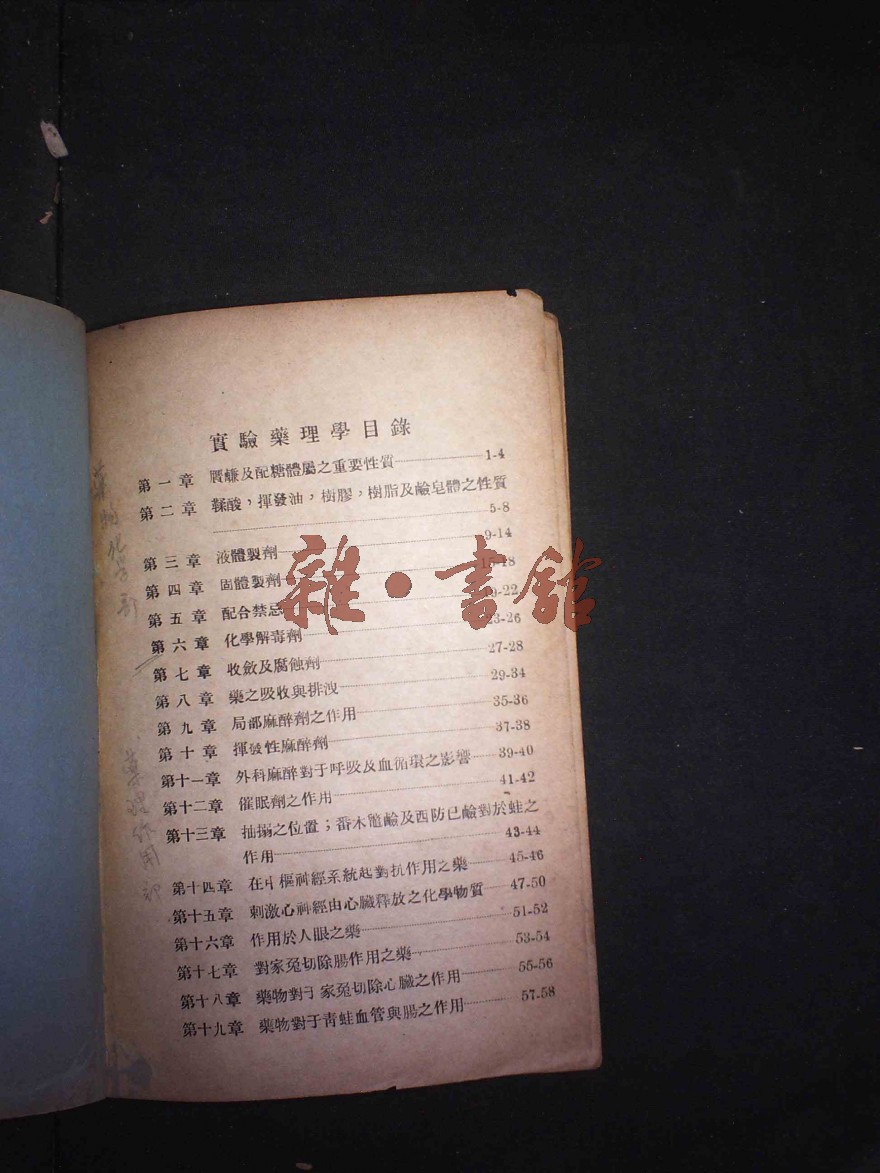 實驗藥理學目錄
第一章 贋鹻及配糖體屬之重要性質 1-4
第二章 鞣酸，揮發油，樹膠，樹脂及鹼皂體之性質
5-8
第三章 液體製劑 9-14
第四章 固體製劑 15-18
第五章 配合禁忌 -22
第六章 化學解毒劑 23-26
第七章 收斂及腐蝕劑 27-28
第八章 藥之吸收與排洩 29-34
第九章 局部麻醉劑之作用 35-36
第十章 揮發性麻醉劑 37-38
第十一章 外科麻醉對于呼吸及血循環之影響 39-40
第十二章 催眠劑之作用 41-42
第十三章 抽搦之位置；番木虌鹼及西防已鹼對於蛙之
作用 43-44
第十四章 在中樞神經系統起對抗作用之藥 45-46
第十五章 刺激心神經由心臟釋放之化學物質 47-50
第十六章 作用於人眼之藥 51-52
第十七章 對家兔切除腸作用之藥 53-54
第十八章 藥物對于家兔切除心臟之作用 55-56
第十九章 藥物對于青蛙血管與腸之作用 57-58
藥物化学部
藥理作用部
雜·書館